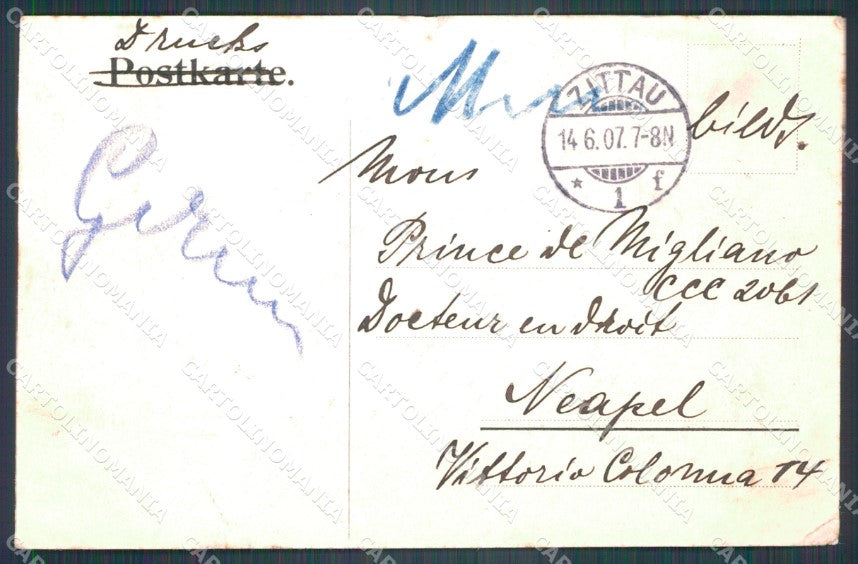 Drucks
Postkarte.
ZITTAU
14 6. 07. 7-8N
* 1 f
bilds.
Mons
Prince de Migliano
CCC 2061
Docteur en droit
Neapel
Vittoria Colonna 14
CARTOLINOMANIA